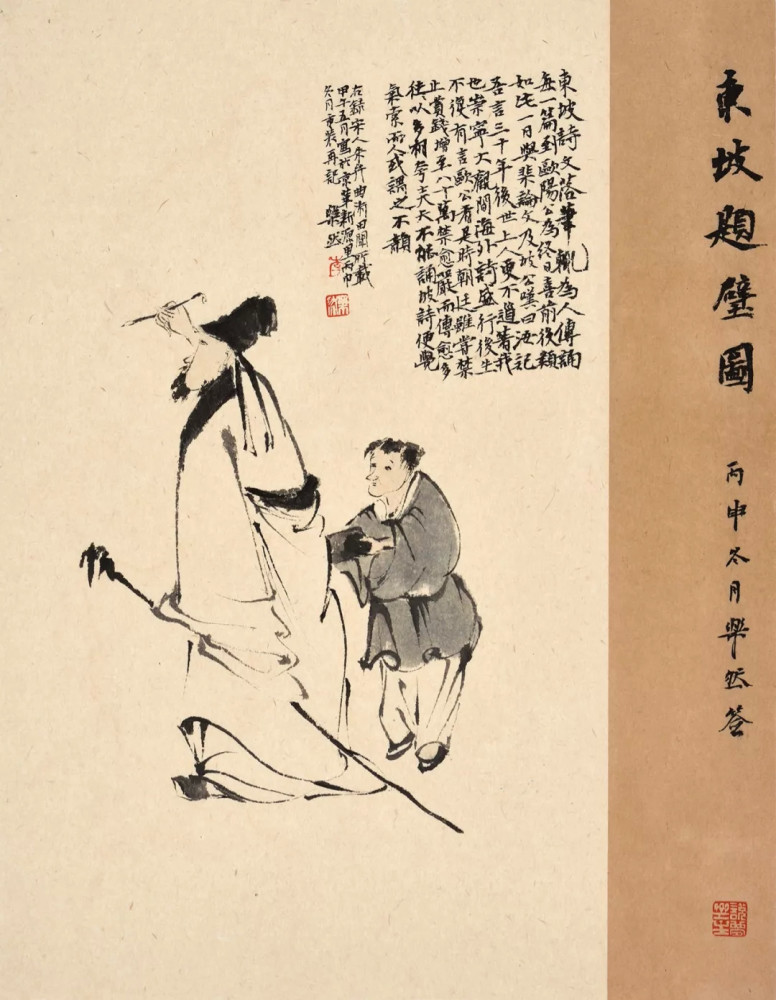 東坡題壁圖
丙申冬月樂然簽
東坡詩文落筆輒為人傳誦
每一篇到歐陽公為終日喜前後類
如此一日與棐論文及坡公嘆曰汝記
吾言三十年後世上人更不道着我
也崇寧大觀間海外詩盛行後生
不復有言歐公者是時朝廷雖嘗禁
止賞錢增至八十萬禁愈嚴而傳愈多
往々以多相夸士大夫不能誦坡詩便覺
氣索而人或謂之不韻
右錄宋人朱弁曲洧舊聞所載
甲午五月寫於京華新源里丙申
冬月重裝再記 樂然